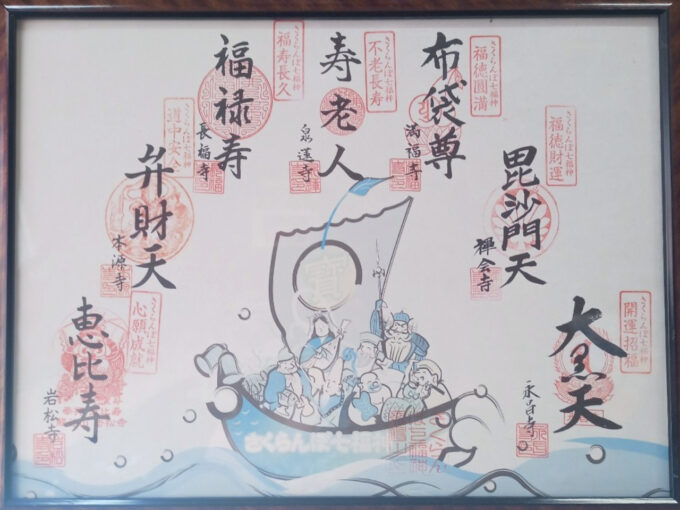 さくらんぼ七福神
開運招福
大黒天
永昌寺
さくらんぼ七福神
福徳財運
毘沙門天
禅会寺
さくらんぼ七福神
福徳圓満
布袋尊
満福寺
さくらんぼ七福神
不老長寿
寿老人
泉蓮寺
さくらんぼ七福神
福寿長久
福禄寿
長福寺
さくらんぼ七福神
道中安全
弁財天
本源寺
さくらんぼ七福神
心願成就
恵比寿
岩松寺
寶
さくらんぼ七福神